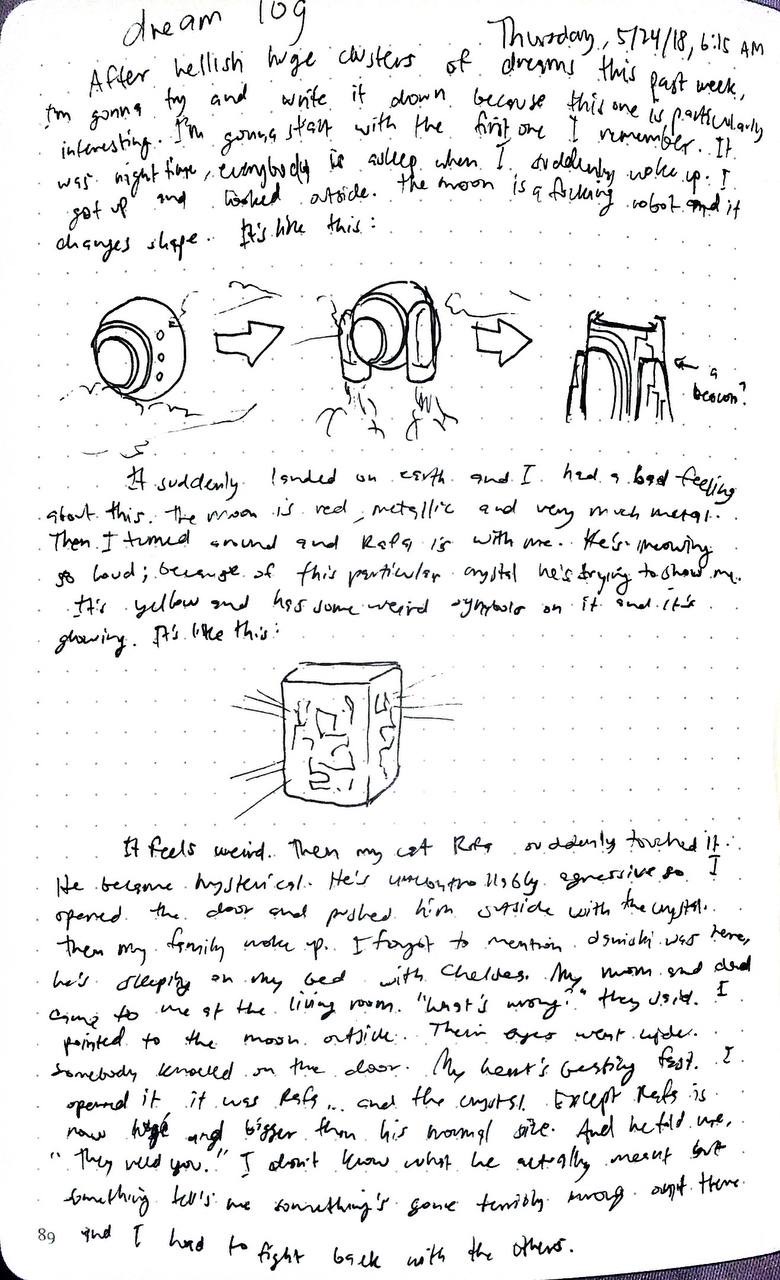 dream log
Thursday, 5/24/18, 6:15 AM
After hellish huge clusters of dreams this past week,
I'm gonna try and write it down because this one is particularly
interesting. I'm gonna start with the first one I remember. It
was night time, everybody is asleep when I suddenly woke up. I
got up and looked outside. The moon is a fucking robot and it
changes shape. It's like this:
a
beacon?
It suddenly landed on earth and I had a bad feeling
about this. The moon is red, metallic and very much metal.
Then I turned around and Rafa is with me. He's meowing
so loud; because of this particular crystal he's trying to show me.
It's yellow and has some weird symbols on it and it's
glowing. It's like this:
It feels weird. Then my cat Rafa suddenly touched it.
He became hysterical. He's uncontrollably agressive so I
opened the door and pushed him outside with the crystal.
Then my family woke up. I forgot to mention was here,
he's sleeping on my bed with My mom and dad
came to me at the living room. "What's wrong?" they said. I
pointed to the moon outside. Their eyes went wide.
Somebody knocked on the door. My heart's beating fast. I
opened it it was Rafa... and the crystal. Except Rafa is
now huge and bigger than his normal size. And he told me,
"They need you." I don't know what he actually meant but
something tell's me something's gone terribly wrong out there
and I had to fight back with the others.
89